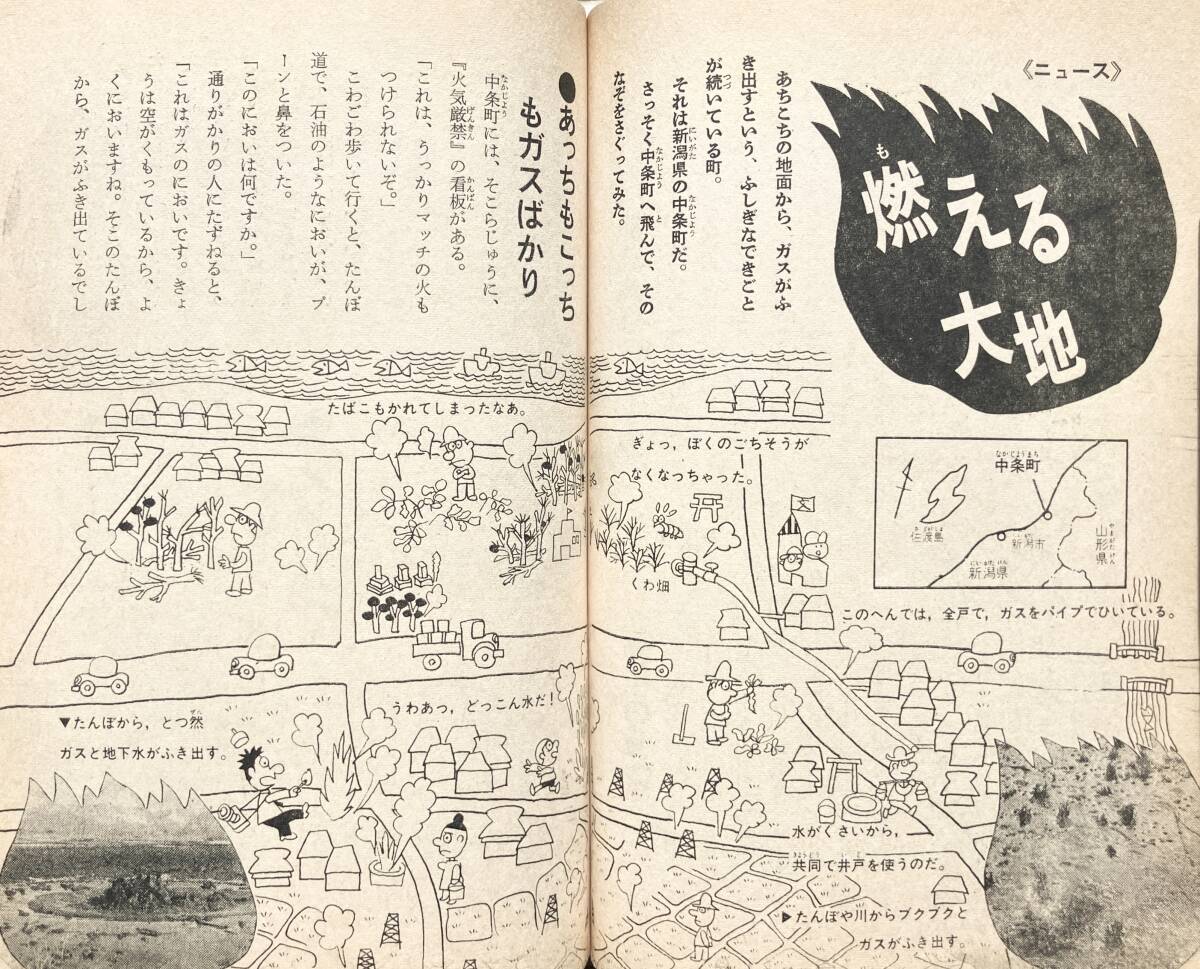 《ニュース》
燃える
大地
あちこちの地面から、ガスがふ
き出すという、ふしぎなできごと
が続いている町。
それは新潟県の中条町だ。
さっそく中条町へ飛んで、その
なぞをさぐってみた。
●あっちもこっち
もガスばかり
中条町には、そこらじゅうに、
『火気厳禁』の看板がある。
「これは、うっかりマッチの火も
つけられないぞ。」
こわごわ歩いて行くと、たんぼ
道で、石油のようなにおいが、プ
ーンと鼻をついた。
「このにおいは何ですか。」
通りがかりの人にたずねると、
「これはガスのにおいです。きょ
うは空がくもっているから、よ
くにおいますね。そこのたんぼ
から、ガスがふき出ているでし
中条町
佐渡島
新潟市
新潟県
山形県
このへんでは，全戸で，ガスをパイプでひいている。
ぎょっ，ぼくのごちそうが
なくなっちゃった。
くわ畑
たばこもかれてしまったなあ。
うわあっ，どっこん水だ！
▼たんぼから，とつ然
ガスと地下水がふき出す。
水がくさいから，
共同で井戸を使うのだ。
▶たんぼや川からブクブクと
ガスがふき出す。